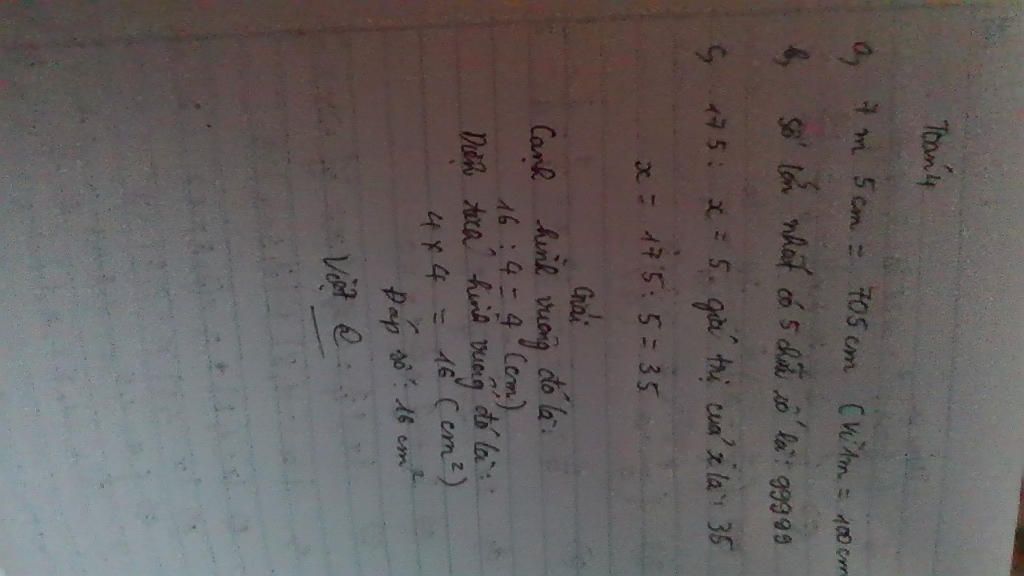 Toán 4
a, 7 m 5 cm = 705 cm (Vì 1m = 100 cm
b, Số lớn nhất có 5 chữ số là: 99999
c, 175 : x = 5. giá trị của x là: 35
x = 175 : 5 = 35
Giải
Cạnh hình vuông đó là:
16 : 4 = 4 (cm)
Diện tích hình vuông đó là:
4 x 4 = 16 (cm²)
Đáp số: 16 cm²